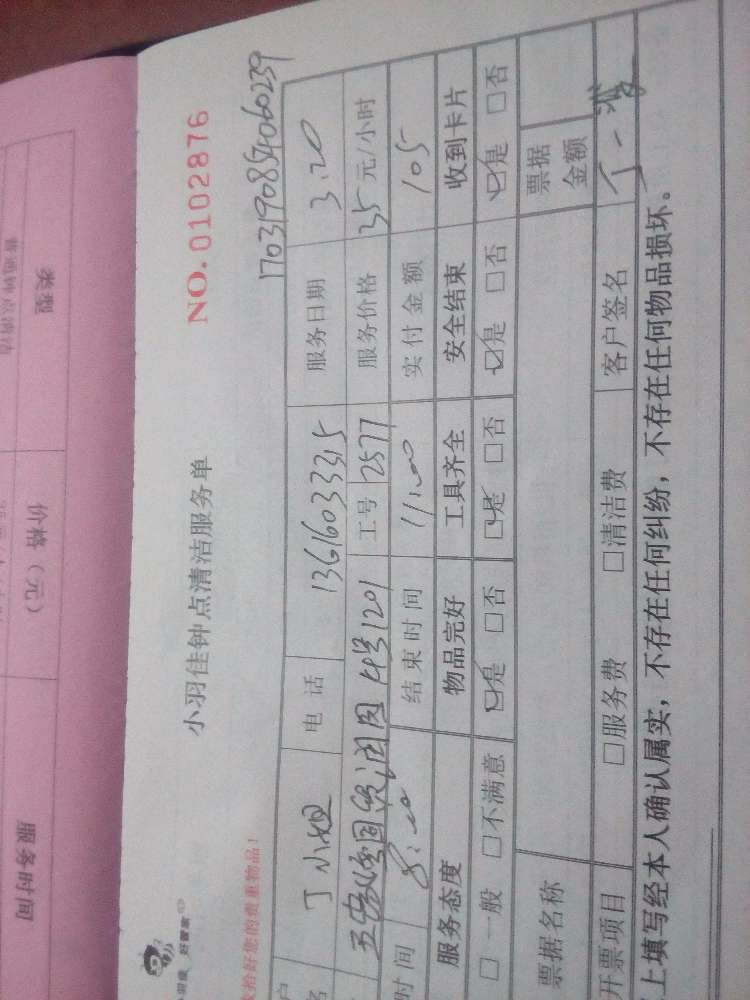 类型
价格（元）
服务时间
普通钟点清洁
NO.0102876
小羽佳钟点清洁服务单
好管家
拾好您的贵重物品！
1703190854060239
户 丁小姐 电话 13616033315 服务日期 3.20
4号1201 工号 2577 服务价格 35元/小时
时间 8:00 结束时间 11:00 实付金额 105
服务态度 物品完好 工具齐全 安全结束 收到卡片
□一般 □不满意 ☑是 □否 ☑是 □否 ☑是 □否 ☑是 □否
票据名称 票据金额
开票项目 □服务费 □清洁费 客户签名
上填写经本人确认属实，不存在任何纠纷，不存在任何物品损坏。